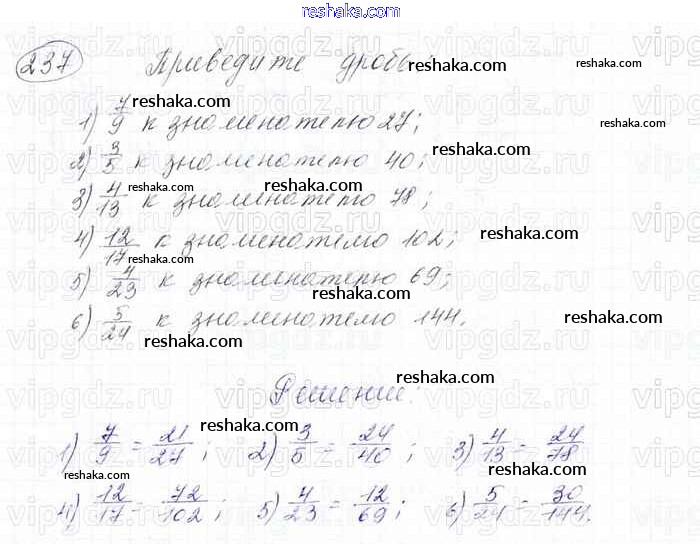 reshaka.com
237 Приведите дробь: reshaka.com
reshaka.com
1) 7/9 к знаменателю 27; reshaka.com
2) 3/5 к знаменателю 40; reshaka.com
reshaka.com
3) 4/13 к знаменателю 78; reshaka.com
4) 12/17 к знаменателю 102; reshaka.com
reshaka.com
5) 4/23 к знаменателю 69; reshaka.com
6) 5/24 к знаменателю 144. reshaka.com
reshaka.com
Решение: reshaka.com
reshaka.com
1) 7/9 = 21/27; 2) 3/5 = 24/40; 3) 4/13 = 24/78 reshaka.com
reshaka.com
4) 12/17 = 72/102; 5) 4/23 = 12/69; 6) 5/24 = 30/144. reshaka.com
reshaka.com